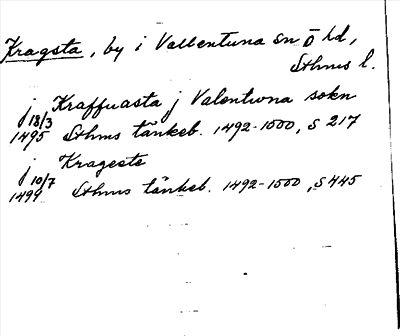 Kragsta, by i Vallentuna sn Ö hd,
Sthms l.
j Kraffuasta j Valentwna sokn
18/3
1495 Sthms tänkeb. 1492-1500, S 217
j Krageste
10/7
1499 Sthms tänkeb. 1492-1500, S 445